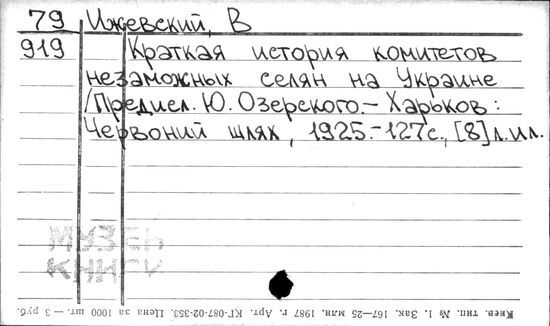 79 Ижевский, В
919 Краткая история комитетов
незаможных селян на Украине
/Предисл. Ю. Озерского.– Харьков:
Червоний шлях, 1925.–127с., [8]л.ил.
МУЗЕЙ
КНИГИ
Киев. тип. № 1. Зак. 167—25. млн. 1987 г. Арт. КГ-087-02-353. Цена за 1000 шт. — 3 руб.